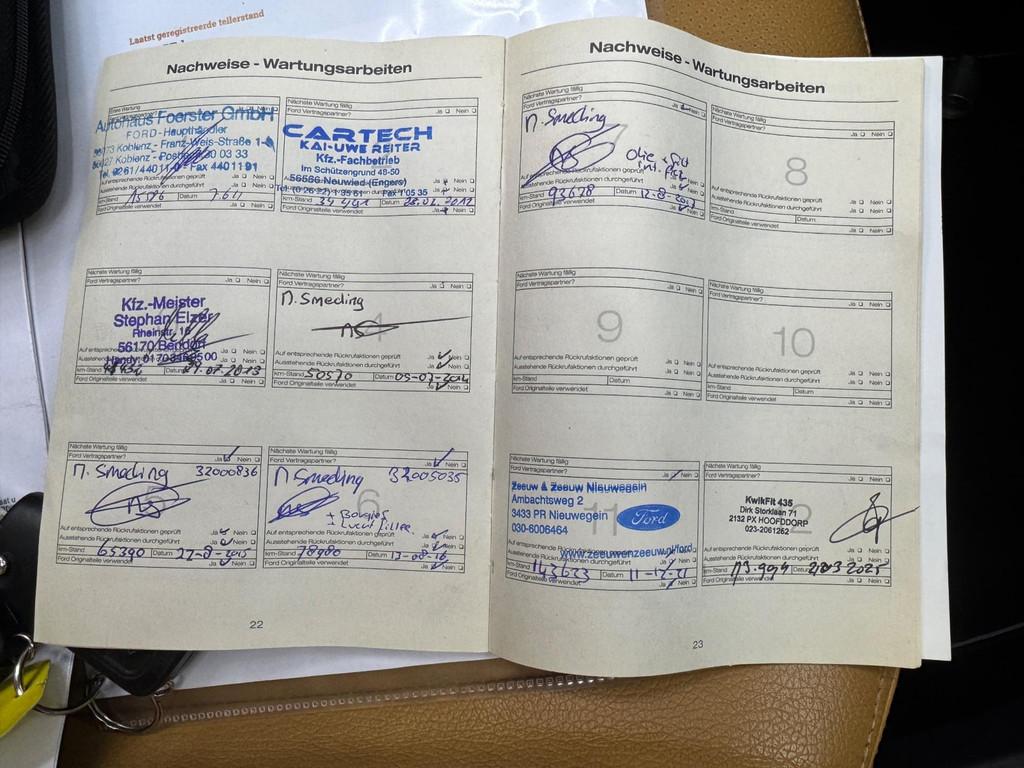 Laatst geregistreerde tellerstand
Nachweise - Wartungsarbeiten
Autohaus Foerster GmbH
FORD-Haupthändler
Koblenz - Franz-Weis-Straße
Koblenz - 30 03 33
Tel. 0261/44011-0 Fax 4401191
Auf entsprechende Rückrufaktionen geprüft Ja Nein
Ausstehende Rückrufaktionen durchgeführt Ja Nein
km-Stand Datum
Ford Originalteile verwendet Ja Nein
Nächste Wartung fällig
Ford Vertragspartner? Ja Nein
CARTECH
KAI-UWE REITER
Kfz.-Fachbetrieb
Im Schützengrund 48-50
56566 Neuwied (Engers)
km-Stand Datum 28.02.2012
Ford Originalteile verwendet Ja Nein
Nächste Wartung fällig
Ford Vertragspartner? Ja Nein
Kfz.-Meister
Stephan Elzer
Rheinstr. 16
56170 Bendorf
Auf entsprechende Rückrufaktionen geprüft Ja Nein
km-Stand Datum
Ford Originalteile verwendet Ja Nein
Nächste Wartung fällig
Ford Vertragspartner? Ja Nein
M. Smeding
4
Auf entsprechende Rückrufaktionen geprüft Ja Nein
Ausstehende Rückrufaktionen durchgeführt Ja Nein
km-Stand 50570 Datum 05-07-2014
Ford Originalteile verwendet Ja Nein
Nächste Wartung fällig
Ford Vertragspartner? Ja Nein
M. Smeding 32000836
5
Auf entsprechende Rückrufaktionen geprüft Ja Nein
Ausstehende Rückrufaktionen durchgeführt Ja Nein
km-Stand 65390 Datum 27-8-2015
Ford Originalteile verwendet Ja Nein
Nächste Wartung fällig
Ford Vertragspartner? Ja Nein
M. Smeding 32005035
6
+ Bougies
Auf entsprechende Rückrufaktionen geprüft Ja Nein
Ausstehende Rückrufaktionen durchgeführt Ja Nein
km-Stand 78980 Datum 13-08-16
Ford Originalteile verwendet Ja Nein
22
Nachweise - Wartungsarbeiten
Nächste Wartung fällig
Ford Vertragspartner? Ja Nein
M. Smeding
7
Olie
Auf entsprechende Rückrufaktionen geprüft
Ausstehende Rückrufaktionen durchgeführt Ja Nein
km-Stand 93678 Datum 12-8-2017
Ford Originalteile verwendet Ja Nein
Nächste Wartung fällig
Ford Vertragspartner? Ja Nein
8
Auf entsprechende Rückrufaktionen geprüft Ja Nein
Ausstehende Rückrufaktionen durchgeführt Ja Nein
km-Stand Datum
Ford Originalteile verwendet Ja Nein
Nächste Wartung fällig
Ford Vertragspartner? Ja Nein
9
Auf entsprechende Rückrufaktionen geprüft Ja Nein
Ausstehende Rückrufaktionen durchgeführt Ja Nein
km-Stand Datum
Ford Originalteile verwendet Ja Nein
Nächste Wartung fällig
Ford Vertragspartner? Ja Nein
10
Auf entsprechende Rückrufaktionen geprüft Ja Nein
Ausstehende Rückrufaktionen durchgeführt Ja Nein
km-Stand Datum
Ford Originalteile verwendet Ja Nein
Nächste Wartung fällig
Ford Vertragspartner? Ja Nein
Zeeuw & Zeeuw Nieuwegein
Ambachtsweg 2
3433 PR Nieuwegein
030-6006464
Ford
11
www.zeeuwenzeeuw.nl/ford
Auf entsprechende Rückrufaktionen geprüft
Ausstehende Rückrufaktionen durchgeführt Ja Nein
km-Stand 143673 Datum 11-12-21
Ford Originalteile verwendet Ja Nein
Nächste Wartung fällig
Ford Vertragspartner? Ja Nein
KwikFit 435
Dirk Storklaan 71
2132 PX HOOFDDORP
023-2061262
Auf entsprechende Rückrufaktionen geprüft Ja Nein
Ausstehende Rückrufaktionen durchgeführt Ja Nein
km-Stand Datum
Ford Originalteile verwendet Ja Nein
23